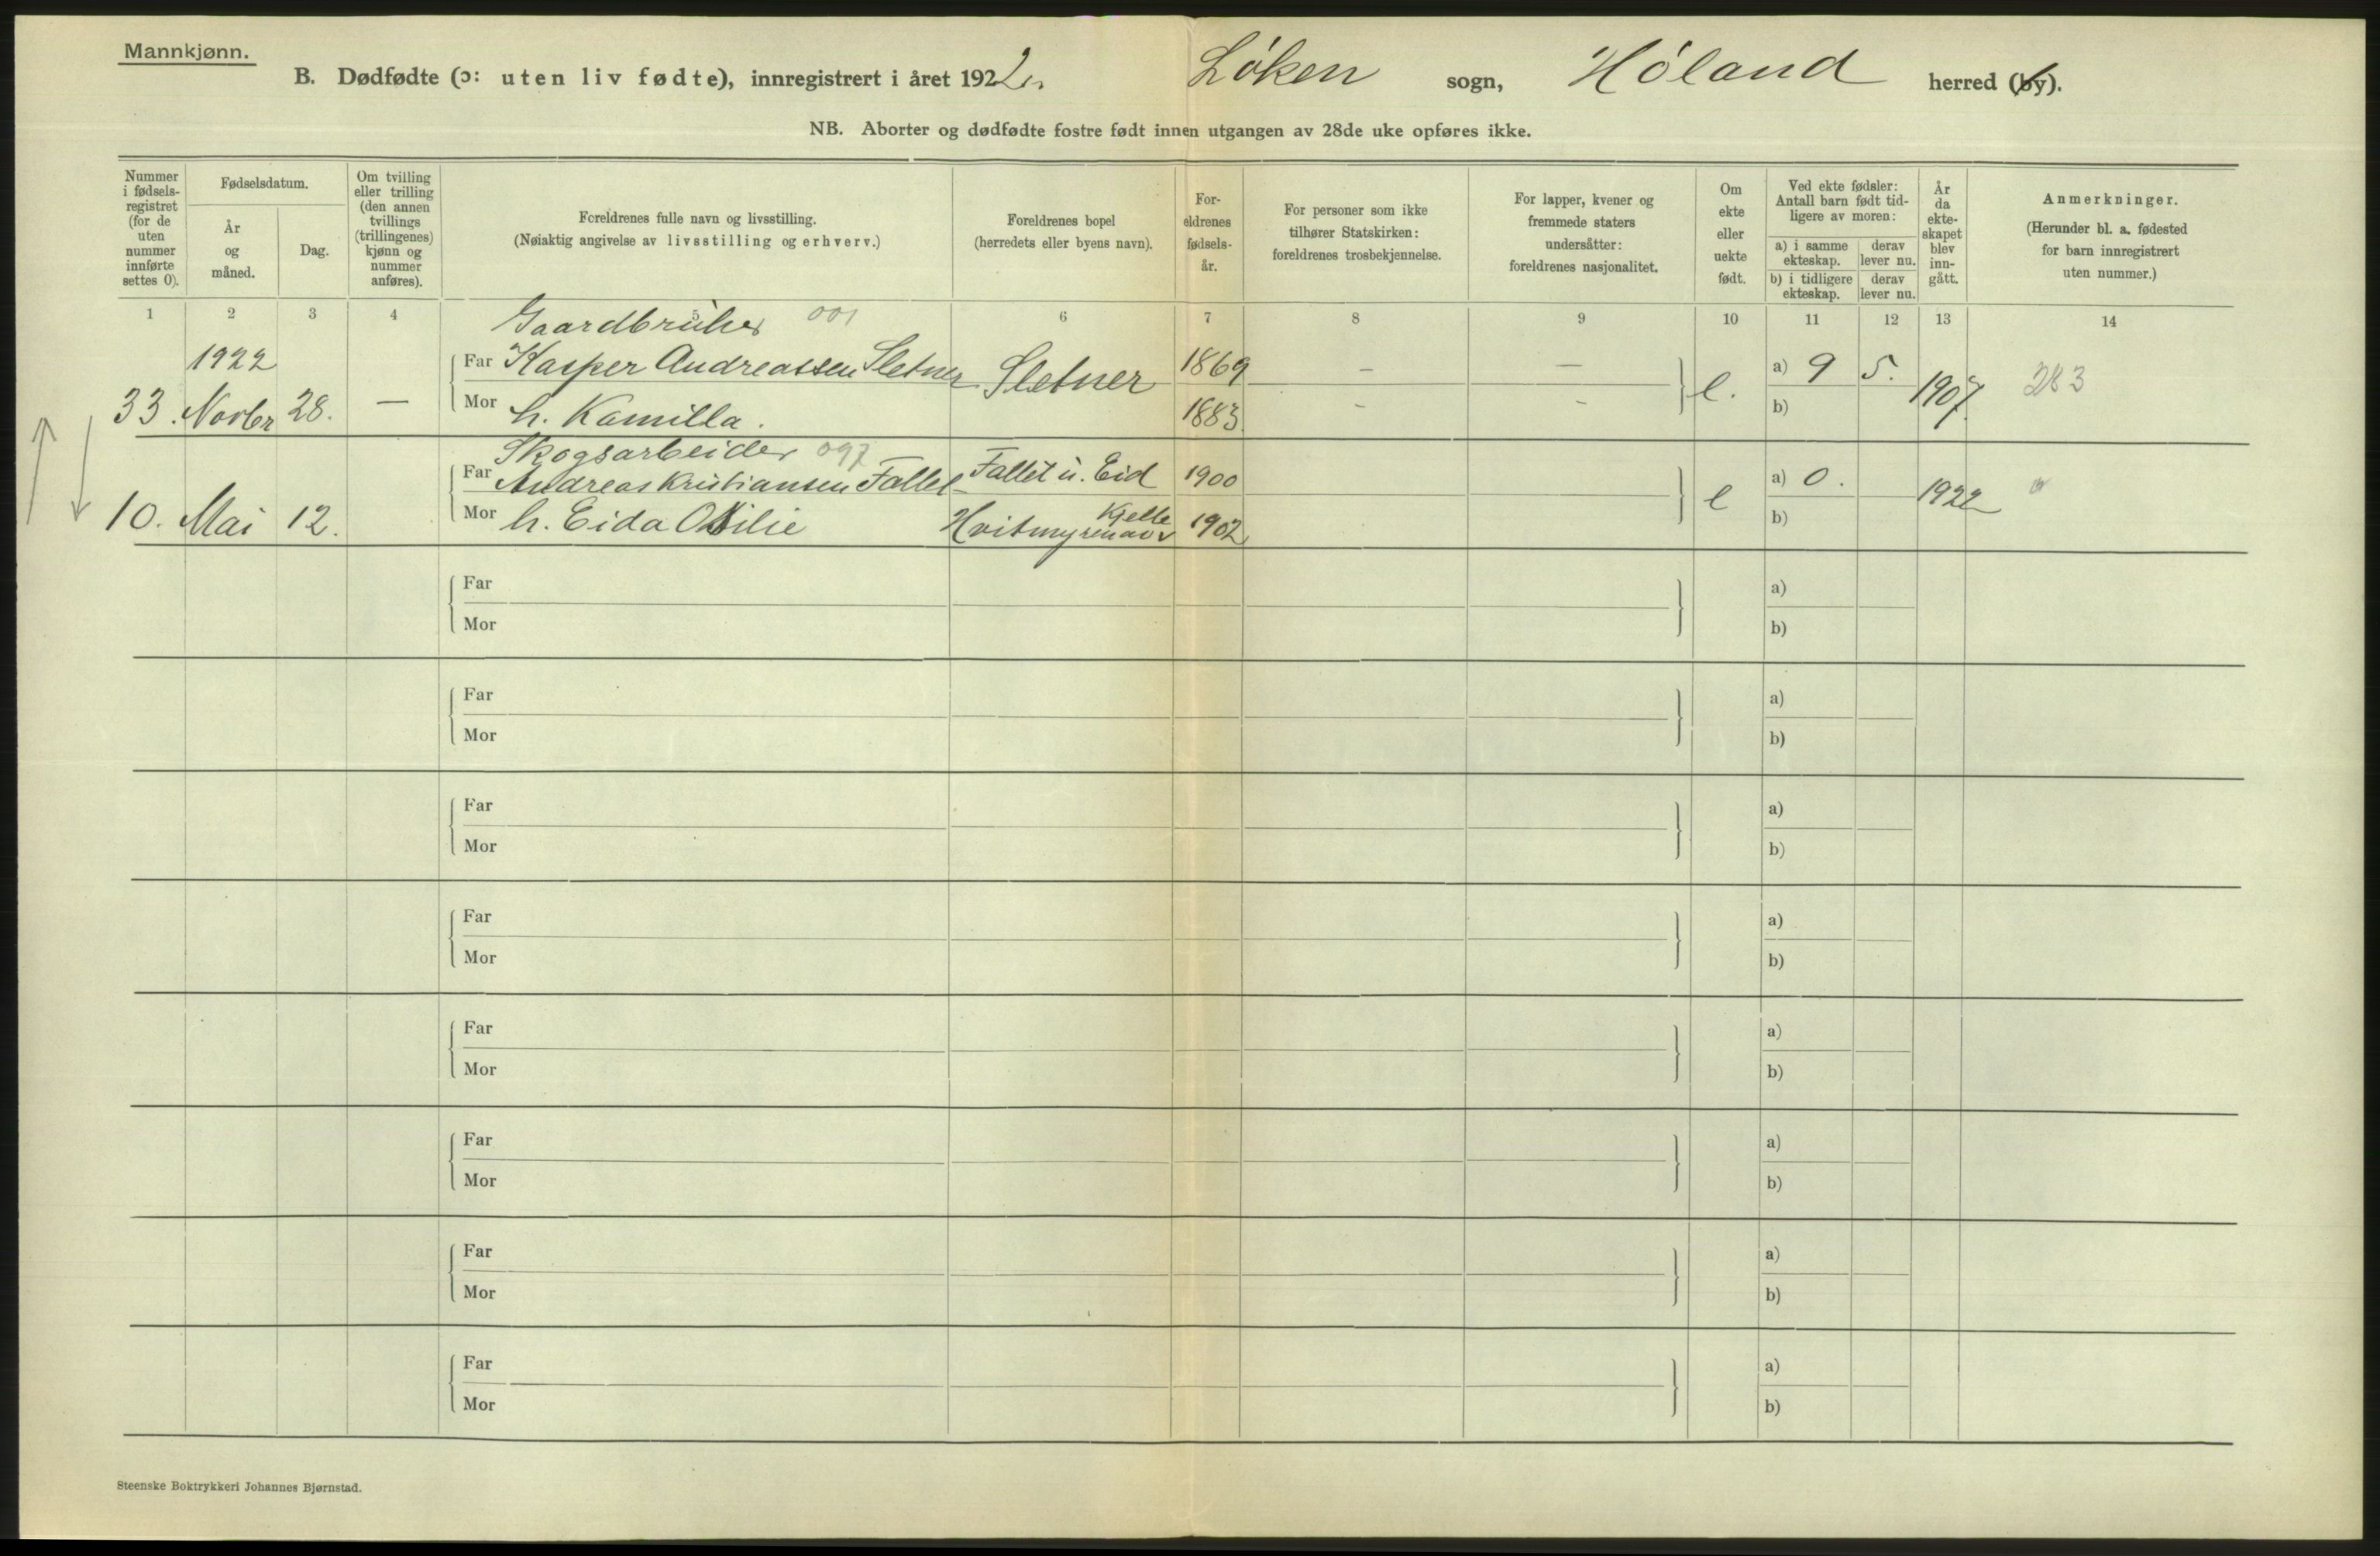 Mannkjønn.
B. Dødfødte (ɔ: uten liv fødte), innregistrert i året 1922. Löken sogn, Höland herred (by).
NB. Aborter og dødfødte fostre født innen utgangen av 28de uke opføres ikke.
Nummer i fødsels-registret (for de uten nummer innførte settes 0).
Fødselsdatum.
År og måned.
Dag.
Om tvilling eller trilling (den annen tvillings (trillingenes) kjønn og nummer anføres).
Foreldrenes fulle navn og livsstilling.
(Nøiaktig angivelse av livsstilling og erhverv.)
Foreldrenes bopel
(herredets eller byens navn).
For-eldrenes fødsels-år.
For personer som ikke tilhører Statskirken: foreldrenes trosbekjennelse.
For lapper, kvener og fremmede staters undersåtter: foreldrenes nasjonalitet.
Om ekte eller uekte født.
Ved ekte fødsler: Antall barn født tid-ligere av moren:
a) i samme ekteskap.
derav lever nu.
b) i tidligere ekteskap.
derav lever nu.
År da ekte-skapet blev inn-gått.
Anmerkninger.
(Herunder bl. a. fødested for barn innregistrert uten nummer.)
1 2 3 4 5 6 7 8 9 10 11 12 13 14
Gaardbruker 001
1922 Far Kasper Andreassen Sletner Sletner 1869 – — a) 9 5.
33. Novbr 28. — Mor h. Kamilla. 1883 – – e. b) 1907 283
Skogsarbeider 097
Far Andreas Kristiansen Fallet Fallet i. Eid 1900 a) 0.
10. Mai 12. Mor h. Eida Otilie Hvitmyren Kjelle 1902 e b) 1922
Far a)
Mor b)
Far a)
Mor b)
Far a)
Mor b)
Far a)
Mor b)
Far a)
Mor b)
Far a)
Mor b)
Far a)
Mor b)
Far a)
Mor b)
Steenske Boktrykkeri Johannes Bjørnstad.